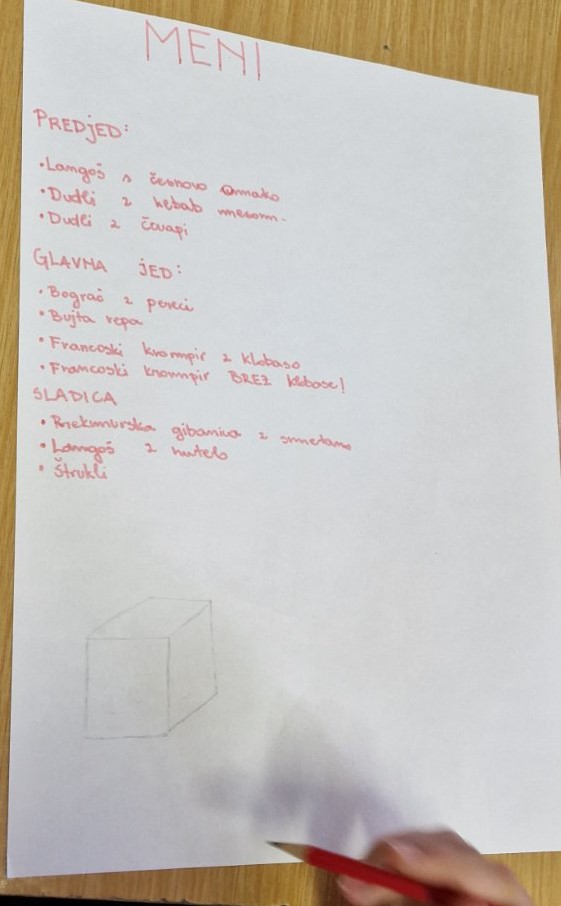 MENI
PREDJED:
• Langoš s česnovo omako
• Dudli z kebab mesom.
• Dudli z čevapi
GLAVNA JED:
• Bograč z pereci
• Bujta repa
• Francoski krompir z klobaso
• Francoski krompir BREZ klobase!
SLADICA
• Prekmurska gibanica z smetano
• Langoš z nutelo
• Štrukli